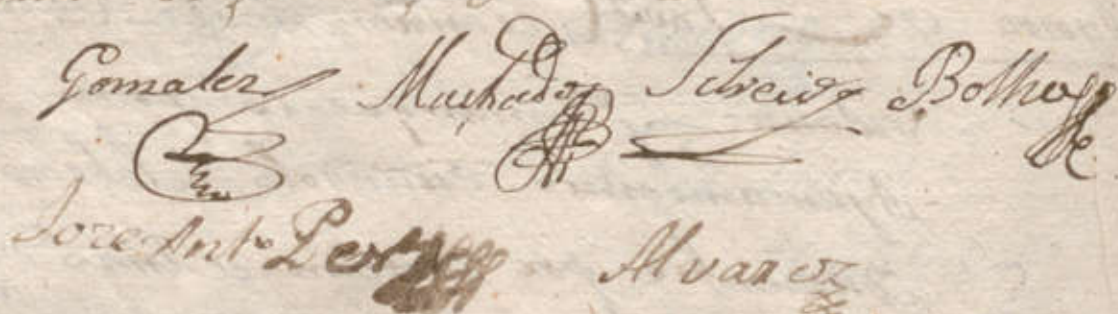 Gonzalez Machado Silveira Botlho
Joze Anto Alvarez